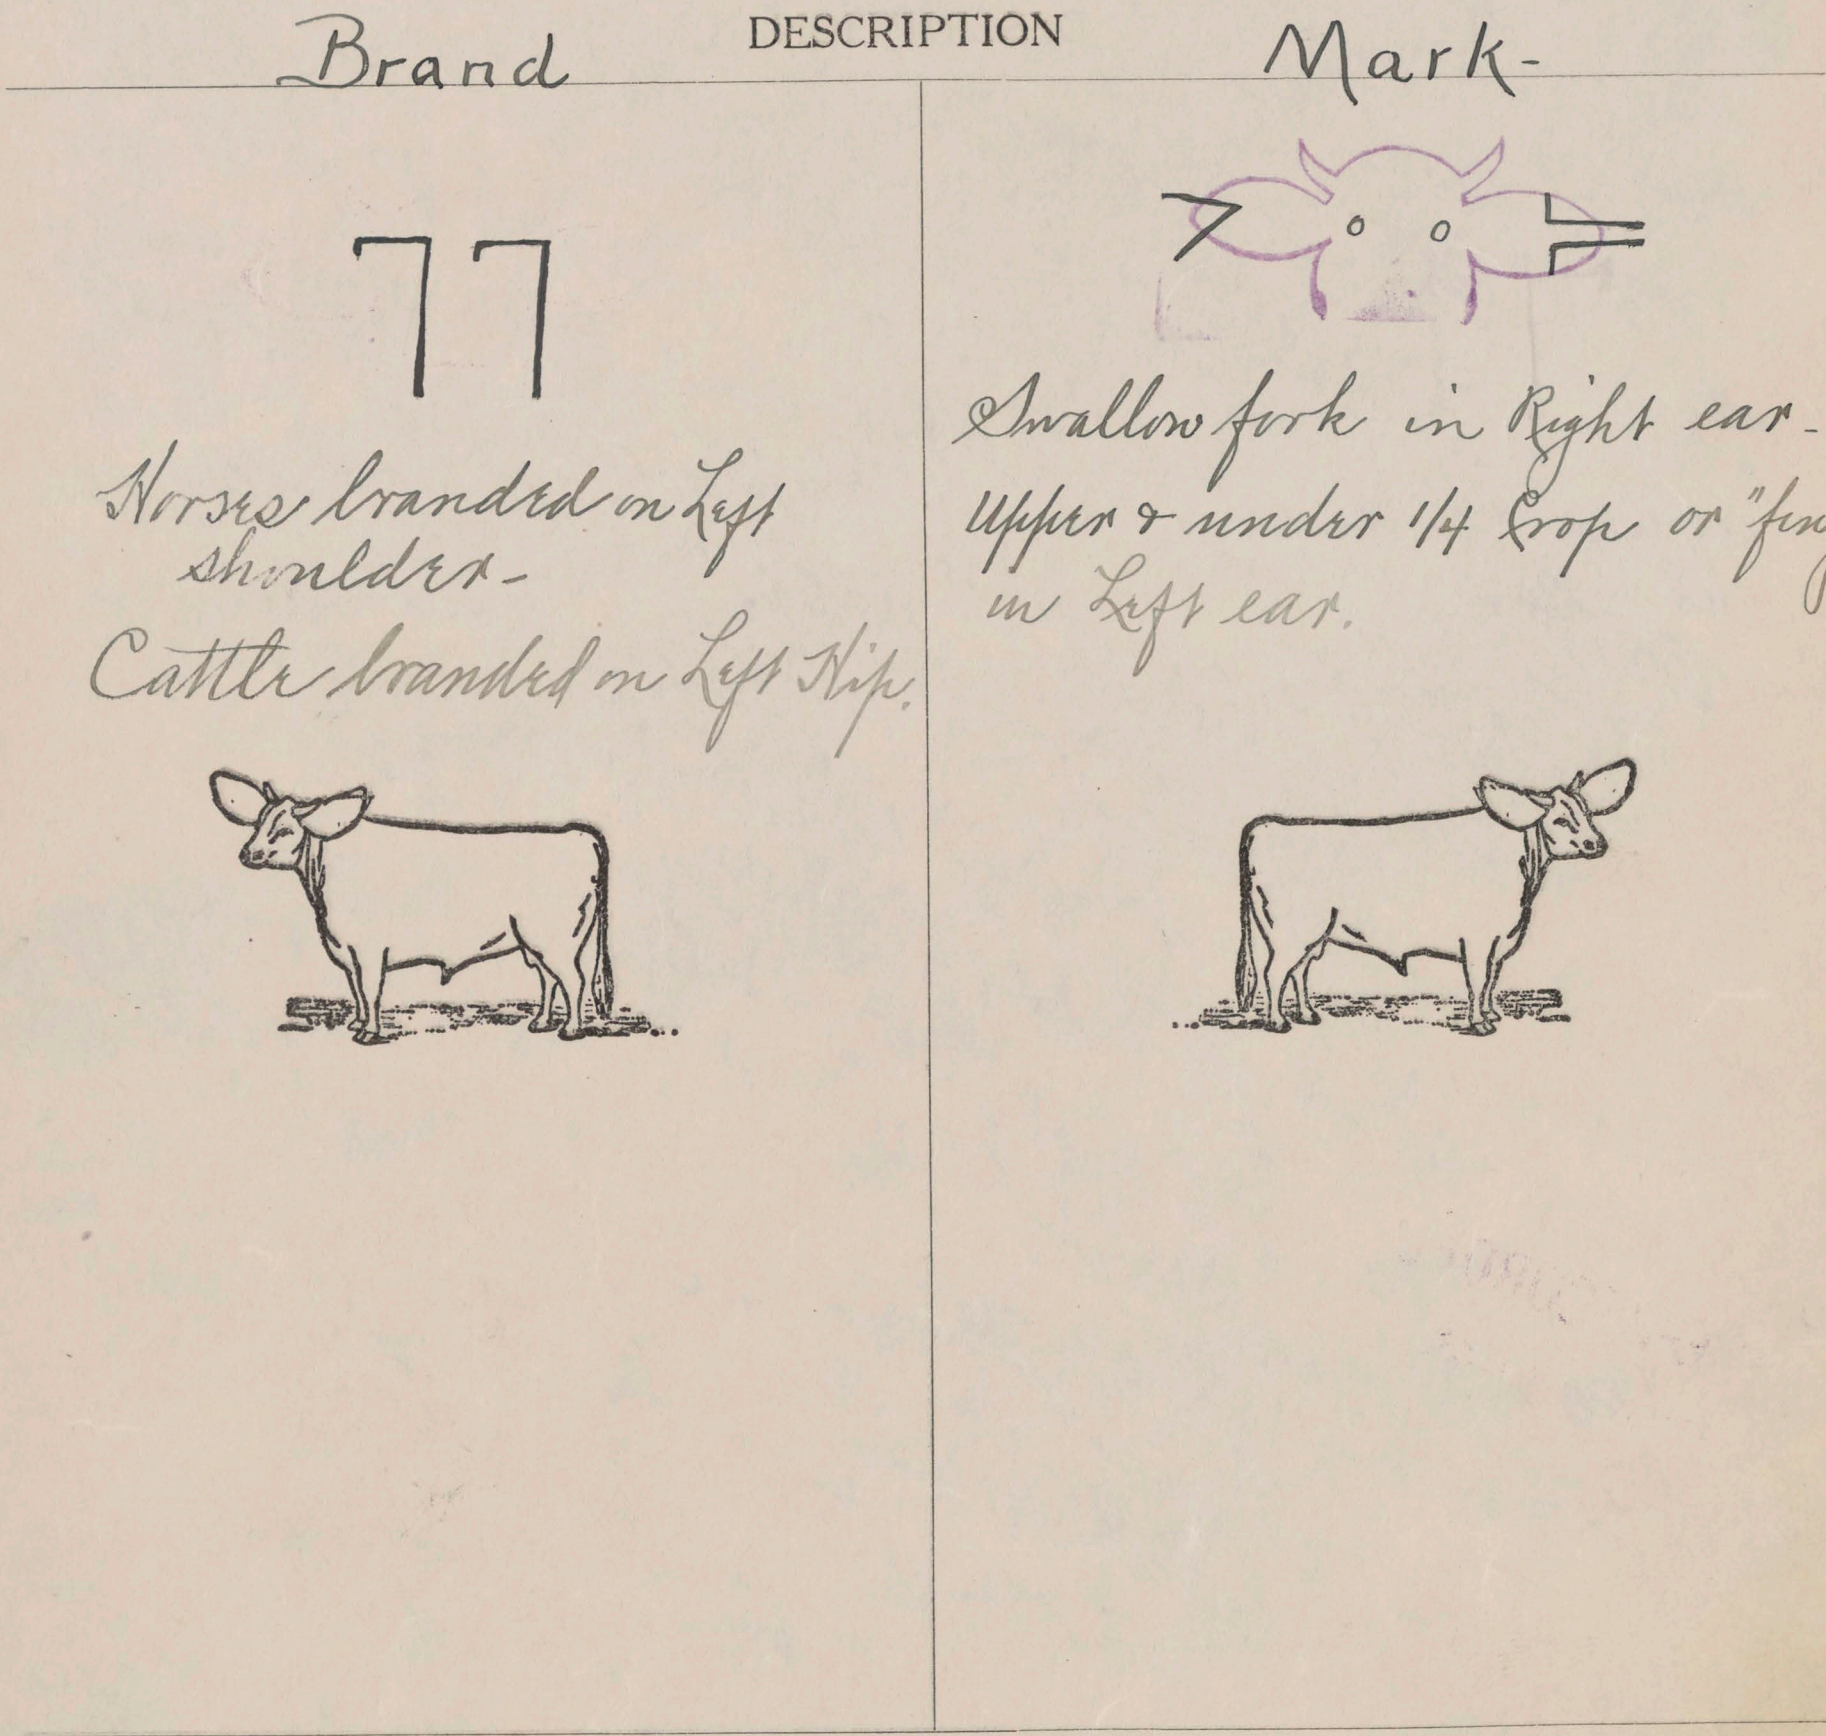 DESCRIPTION
Brand
77
Horses branded on Left
shoulder-
Cattle branded on Left Hip.
Mark-
Swallow fork in Right ear-
Upper & under 1/4 Crop or "
in Left ear.